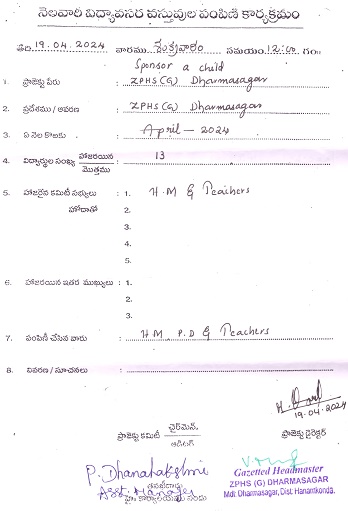 నెలవారీ విద్యావసర వస్తువుల పంపిణి కార్యక్రమం
తేది. 19.04.2024 వారము శుక్రవారం సమయం. 12:00 గం॥
Sponsor a child
1. ప్రాజెక్టు పేరు : ZPHS(G) Dharmasagar
2. ప్రదేశము / ఆవరణ : ZPHS(G) Dharmasagar
3. ఏ నెల కొఱకు : April - 2024
4. విద్యార్థుల సంఖ్య హాజరయిన మొత్తము : 13
5. హాజరైన కమిటీ సభ్యులు : 1. H.M & Teachers
హోదాతో 2.
3.
4.
5.
6. హాజరయిన ఇతర ముఖ్యులు : 1.
2.
3.
7. పంపిణీ చేసిన వారు : H.M, P.D & Teachers
8. వివరణ / సూచనలు :
19.04.2024
ప్రాజెక్టు కమిటీ చైర్మెన్, ఆడిటర్ ప్రాజెక్టు డైరెక్టర్
P. Dhanalakshmi
Asst. Manager
Gazetted Headmaster
ZPHS (G) DHARMASAGAR
Mdl: Dharmasagar, Dist. Hanamkonda.